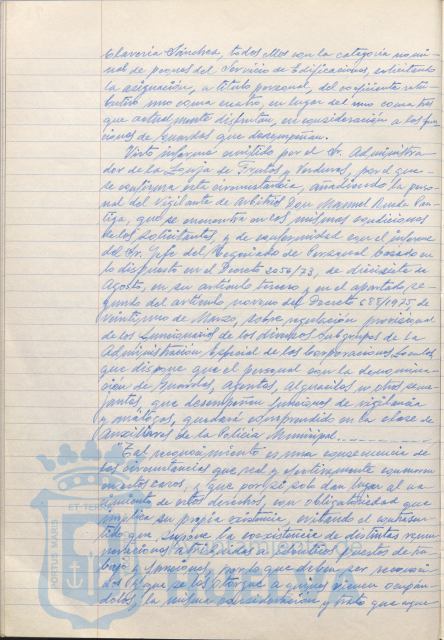 Clavería Sánchez, todos ellos con la categoría nomi-
nal de peones del Servicio de Edificaciones, solicitando
la asignación, a título personal, del coeficiente retri-
butivo uno coma cuatro, en lugar del uno coma tres
que actualmente disfrutan, en consideración a las fun-
ciones de Guardas que desempeñan.
Visto informe emitido por el Sr. Administra-
dor de la Lonja de Frutas y Verduras, por el que
se confirma esta circunstancia, añadiendo la perso-
nal del Vigilante de Arbitrios Don Manuel Rueda Pan-
toja, que se encuentra en las mismas condiciones
de los solicitantes, y de conformidad con el informe
del Sr. Jefe del Negociado de Personal basado en
lo dispuesto en el Decreto 2056/73, de diecisiete de
Agosto, en su artículo tercero y en el apartado se-
gundo del artículo noveno del Decreto 688/1975 de
veintiuno de Marzo, sobre regulación provisional
de los funcionarios de los diversos subgrupos de la
Administración Especial de las Corporaciones Locales
que dispone que el personal con la denomina-
ción de Guardas, Agentes, Alguaciles u otros seme-
jantes, que desempeñan funciones de vigilancia
y análogas, quedará comprendido en la clase de
Auxiliares de la Policía Municipal.
"Tal reconocimiento es una consecuencia de
las circunstancias que real y efectivamente concurren
en estos casos, y que por sí solo dan lugar al na-
cimiento de estos derechos, con obligatoriedad que
implica su propia existencia, evitando el contrasen-
tido que supone la coexistencia de distintas remu-
neraciones atribuidas a idénticos puestos de tra-
bajo y funciones, por lo que deben ser reconoci-
das y que se les otorgue a quienes vienen ocupán-
dolos, la misma consideración y trato que aque-
PORTUS MARIS ET TERRAE
HUELVA